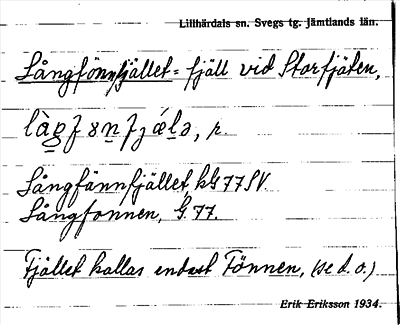 Lillhärdals sn. Svegs tg. Jämtlands län.
Långfönnfjället = fjäll vid Storfjäten,
Långfännfjället, kG77SV.
Långfonnen, G.77.
Fjället kallas endast Fönnen, (se d. o.)
Erik Eriksson 1934.